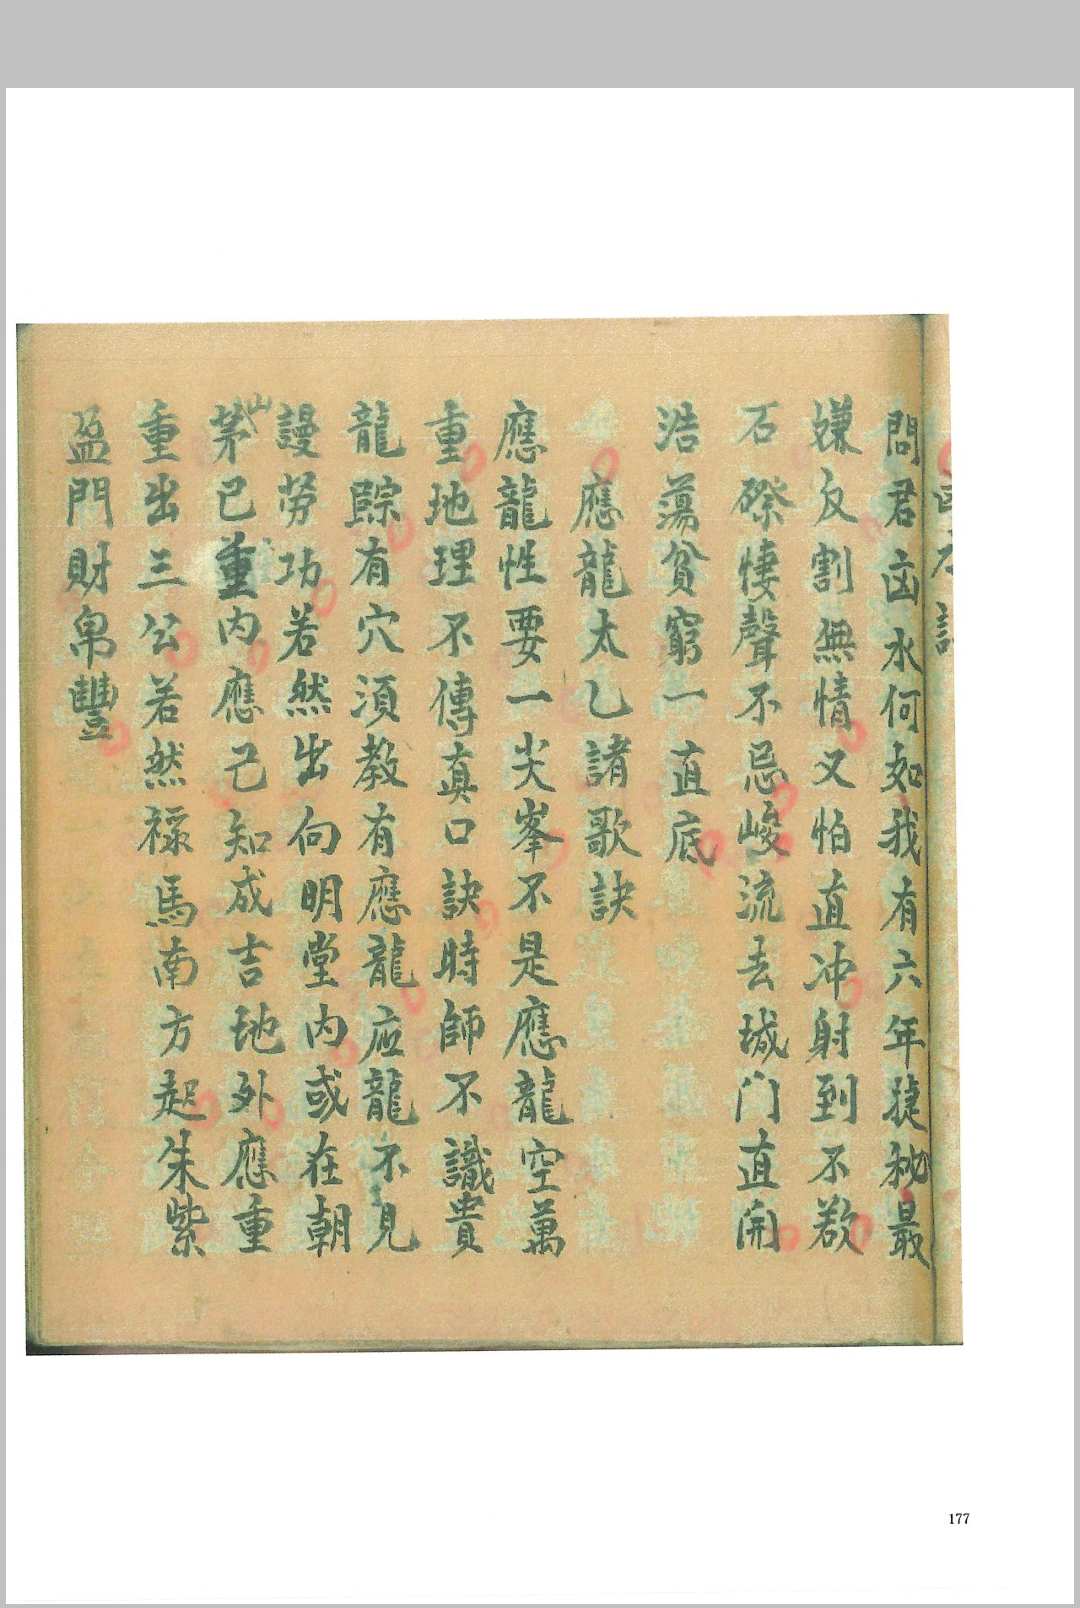 問君凶水何如我有六年捷秘最
嫌反割無情又怕直冲射到不欲
石磜悽聲不忌峻流去城门直開
浩蕩貧窮一直底
應龍太乙諸歌訣
應龍性要一尖峯不是應龍空萬
重地理不傳真口訣時師不識貴
龍踪有穴須教有應龍应龍不見
謾劳功若然出向明堂内或在朝
山
茅已重内應已知成吉地外應重
重出三公若然禄馬南方起朱紫
盈門財帛豐
177